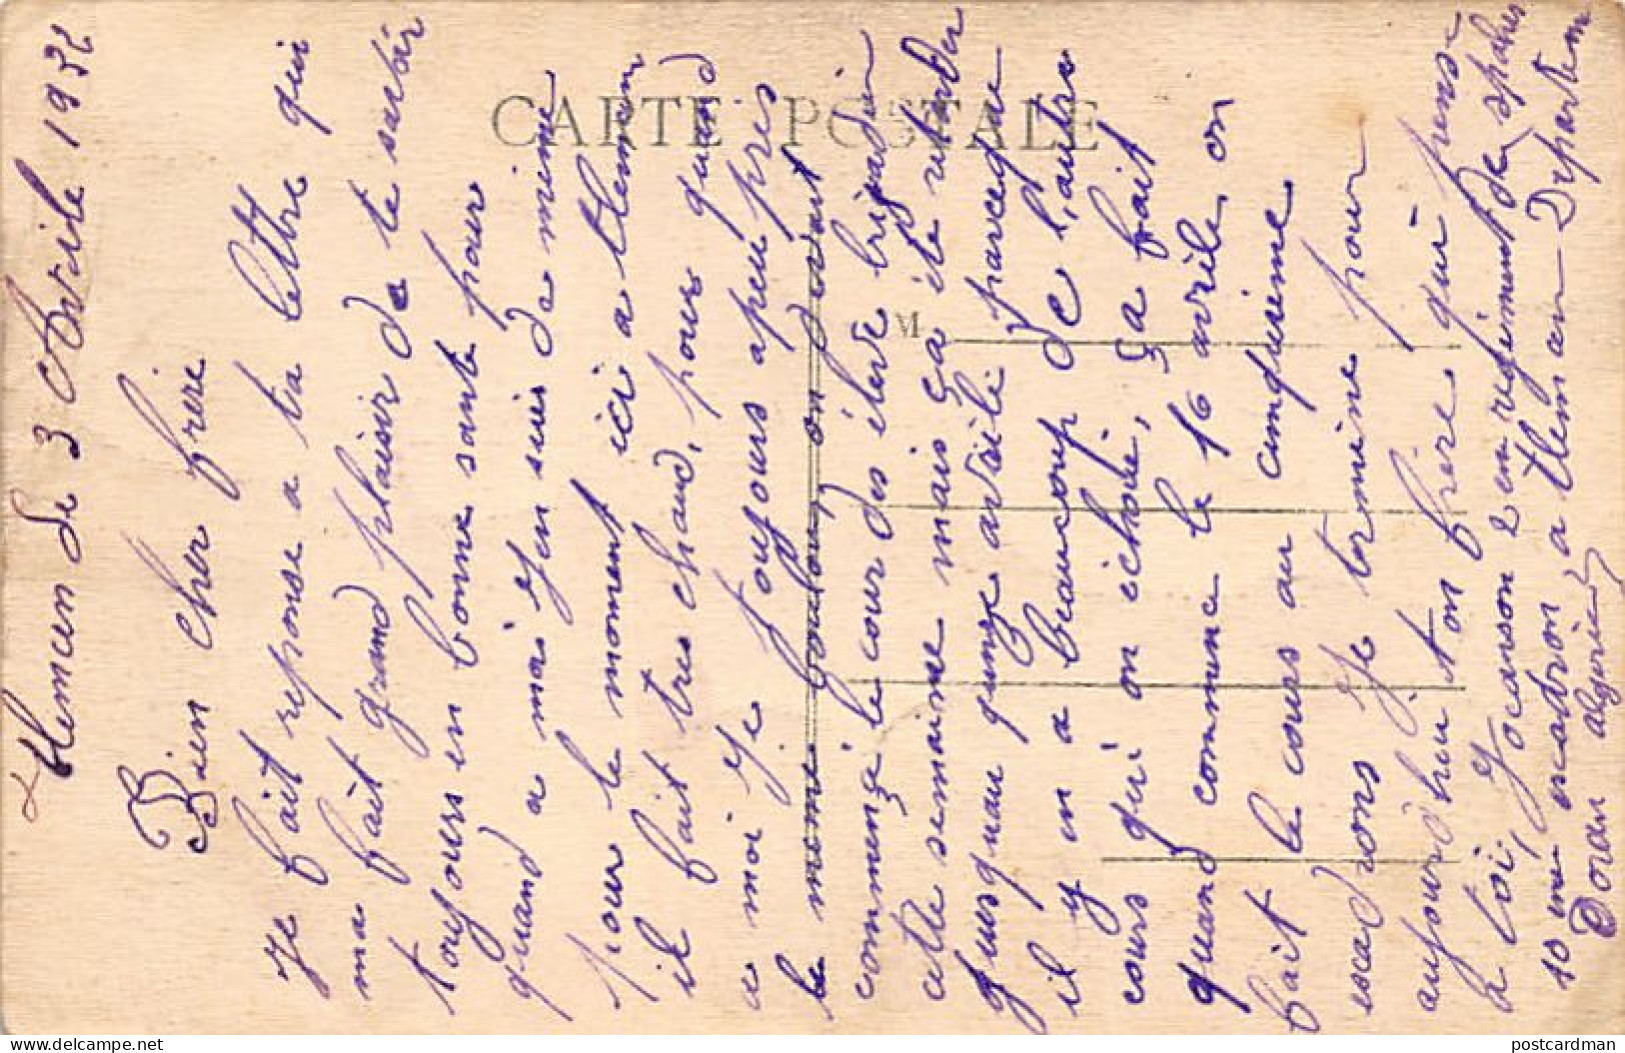 tlemcen le 3 Avrile 1932
Bien cher frère
Je fait reponse a ta lettre qui
ma fait grand plaisir de te savoir
toujours en bonne sante pour
quand a moi j'en suis de même
pour le moment ici a tlemcen
il fait tres chaud, pour quand
a moi Je toujours apeu pres
le meme boulouy, on devait
commençé le cour des éleve brigadier
cette semaine mais ça été retarder
jusquau quinze avrile parceque
il y en a beaucoup de l'autre
cours qui on échoué, ça fait
quand commence le 16 avrile on
fait le cours au cinquieme
escadrons Je termine pour
aujourd'hui ton frère qui pense
a toi, Jocarson 2 em regiment de spahis
10 me escadron, a tlemcen Departem
Doran algerie
CARTE POSTALE
M
delcampe.net
postcardman